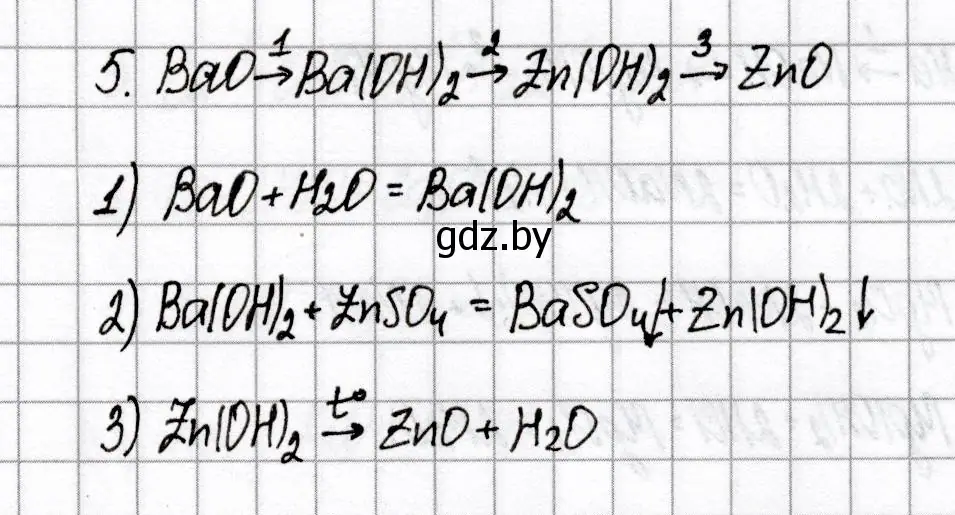 5. BaO →¹ Ba(OH)₂ →² Zn(OH)₂ →³ ZnO
1) BaO + H₂O = Ba(OH)₂
gdz.by
2) Ba(OH)₂ + ZnSO₄ = BaSO₄↓ + Zn(OH)₂↓
3) Zn(OH)₂ →t° ZnO + H₂O